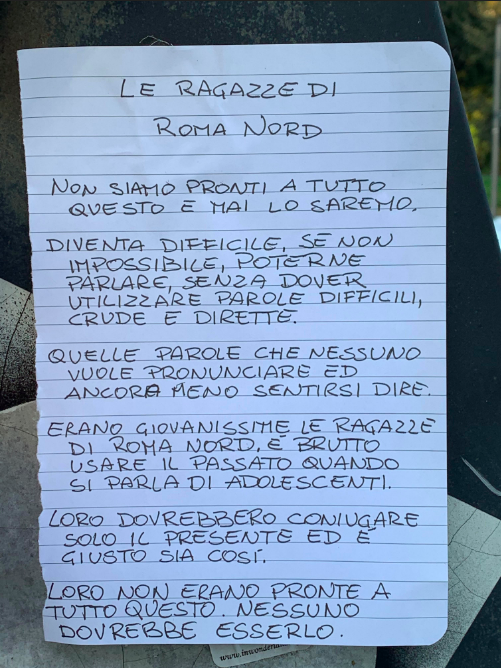 LE RAGAZZE DI
ROMA NORD
NON SIAMO PRONTI A TUTTO
QUESTO E MAI LO SAREMO.
DIVENTA DIFFICILE, SE NON
IMPOSSIBILE, POTERNE
PARLARE, SENZA DOVER
UTILIZZARE PAROLE DIFFICILI,
CRUDE E DIRETTE.
QUELLE PAROLE CHE NESSUNO
VUOLE PRONUNCIARE ED
ANCORA MENO SENTIRSI DIRE.
ERANO GIOVANISSIME LE RAGAZZE
DI ROMA NORD. È BRUTTO
USARE IL PASSATO QUANDO
SI PARLA DI ADOLESCENTI.
LORO DOVREBBERO CONIUGARE
SOLO IL PRESENTE ED È
GIUSTO SIA COSÍ.
LORO NON ERANO PRONTE A
TUTTO QUESTO. NESSUNO
DOVREBBE ESSERLO.